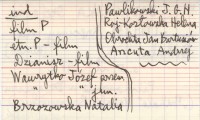 ind
film P
etn. P - film
Dzianisz - film
Wawrytko Józef
" jun.
Brzozowska Natalia
Pawlikowski J. G. H.
Roj-Kozłowska Helena
Obrochta Jan
Ancuta Andrzej